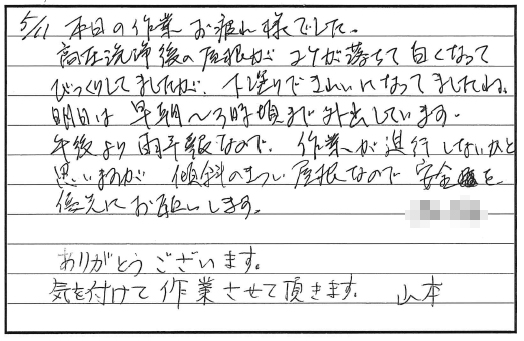 5/11 本日の作業 お疲れ様でした。
高圧洗浄後の屋根が コケが落ちて 白くなって
びっくりしてましたが、下塗りで きれいになってましたね。
明日は 早朝〜3時頃まで外出しています。
午後より 雨予報なので、作業が進行しないかと
思いますが 傾斜のきつい屋根なので 安全を
優先にお願いします。
ありがとうございます。
気を付けて作業させて頂きます。 山本